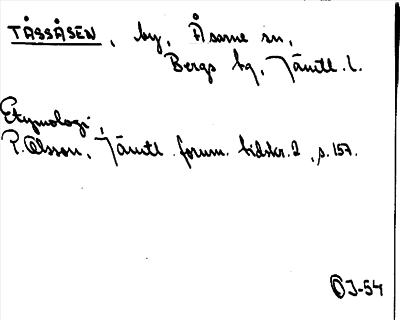 TÅSSÅSEN, by, Åsarne sn,
Bergs hg, Jämtl. l.
Etymologi,
P. Olsson, Jämtl. fornm. tidskr. 2, s. 157.
OJ-54